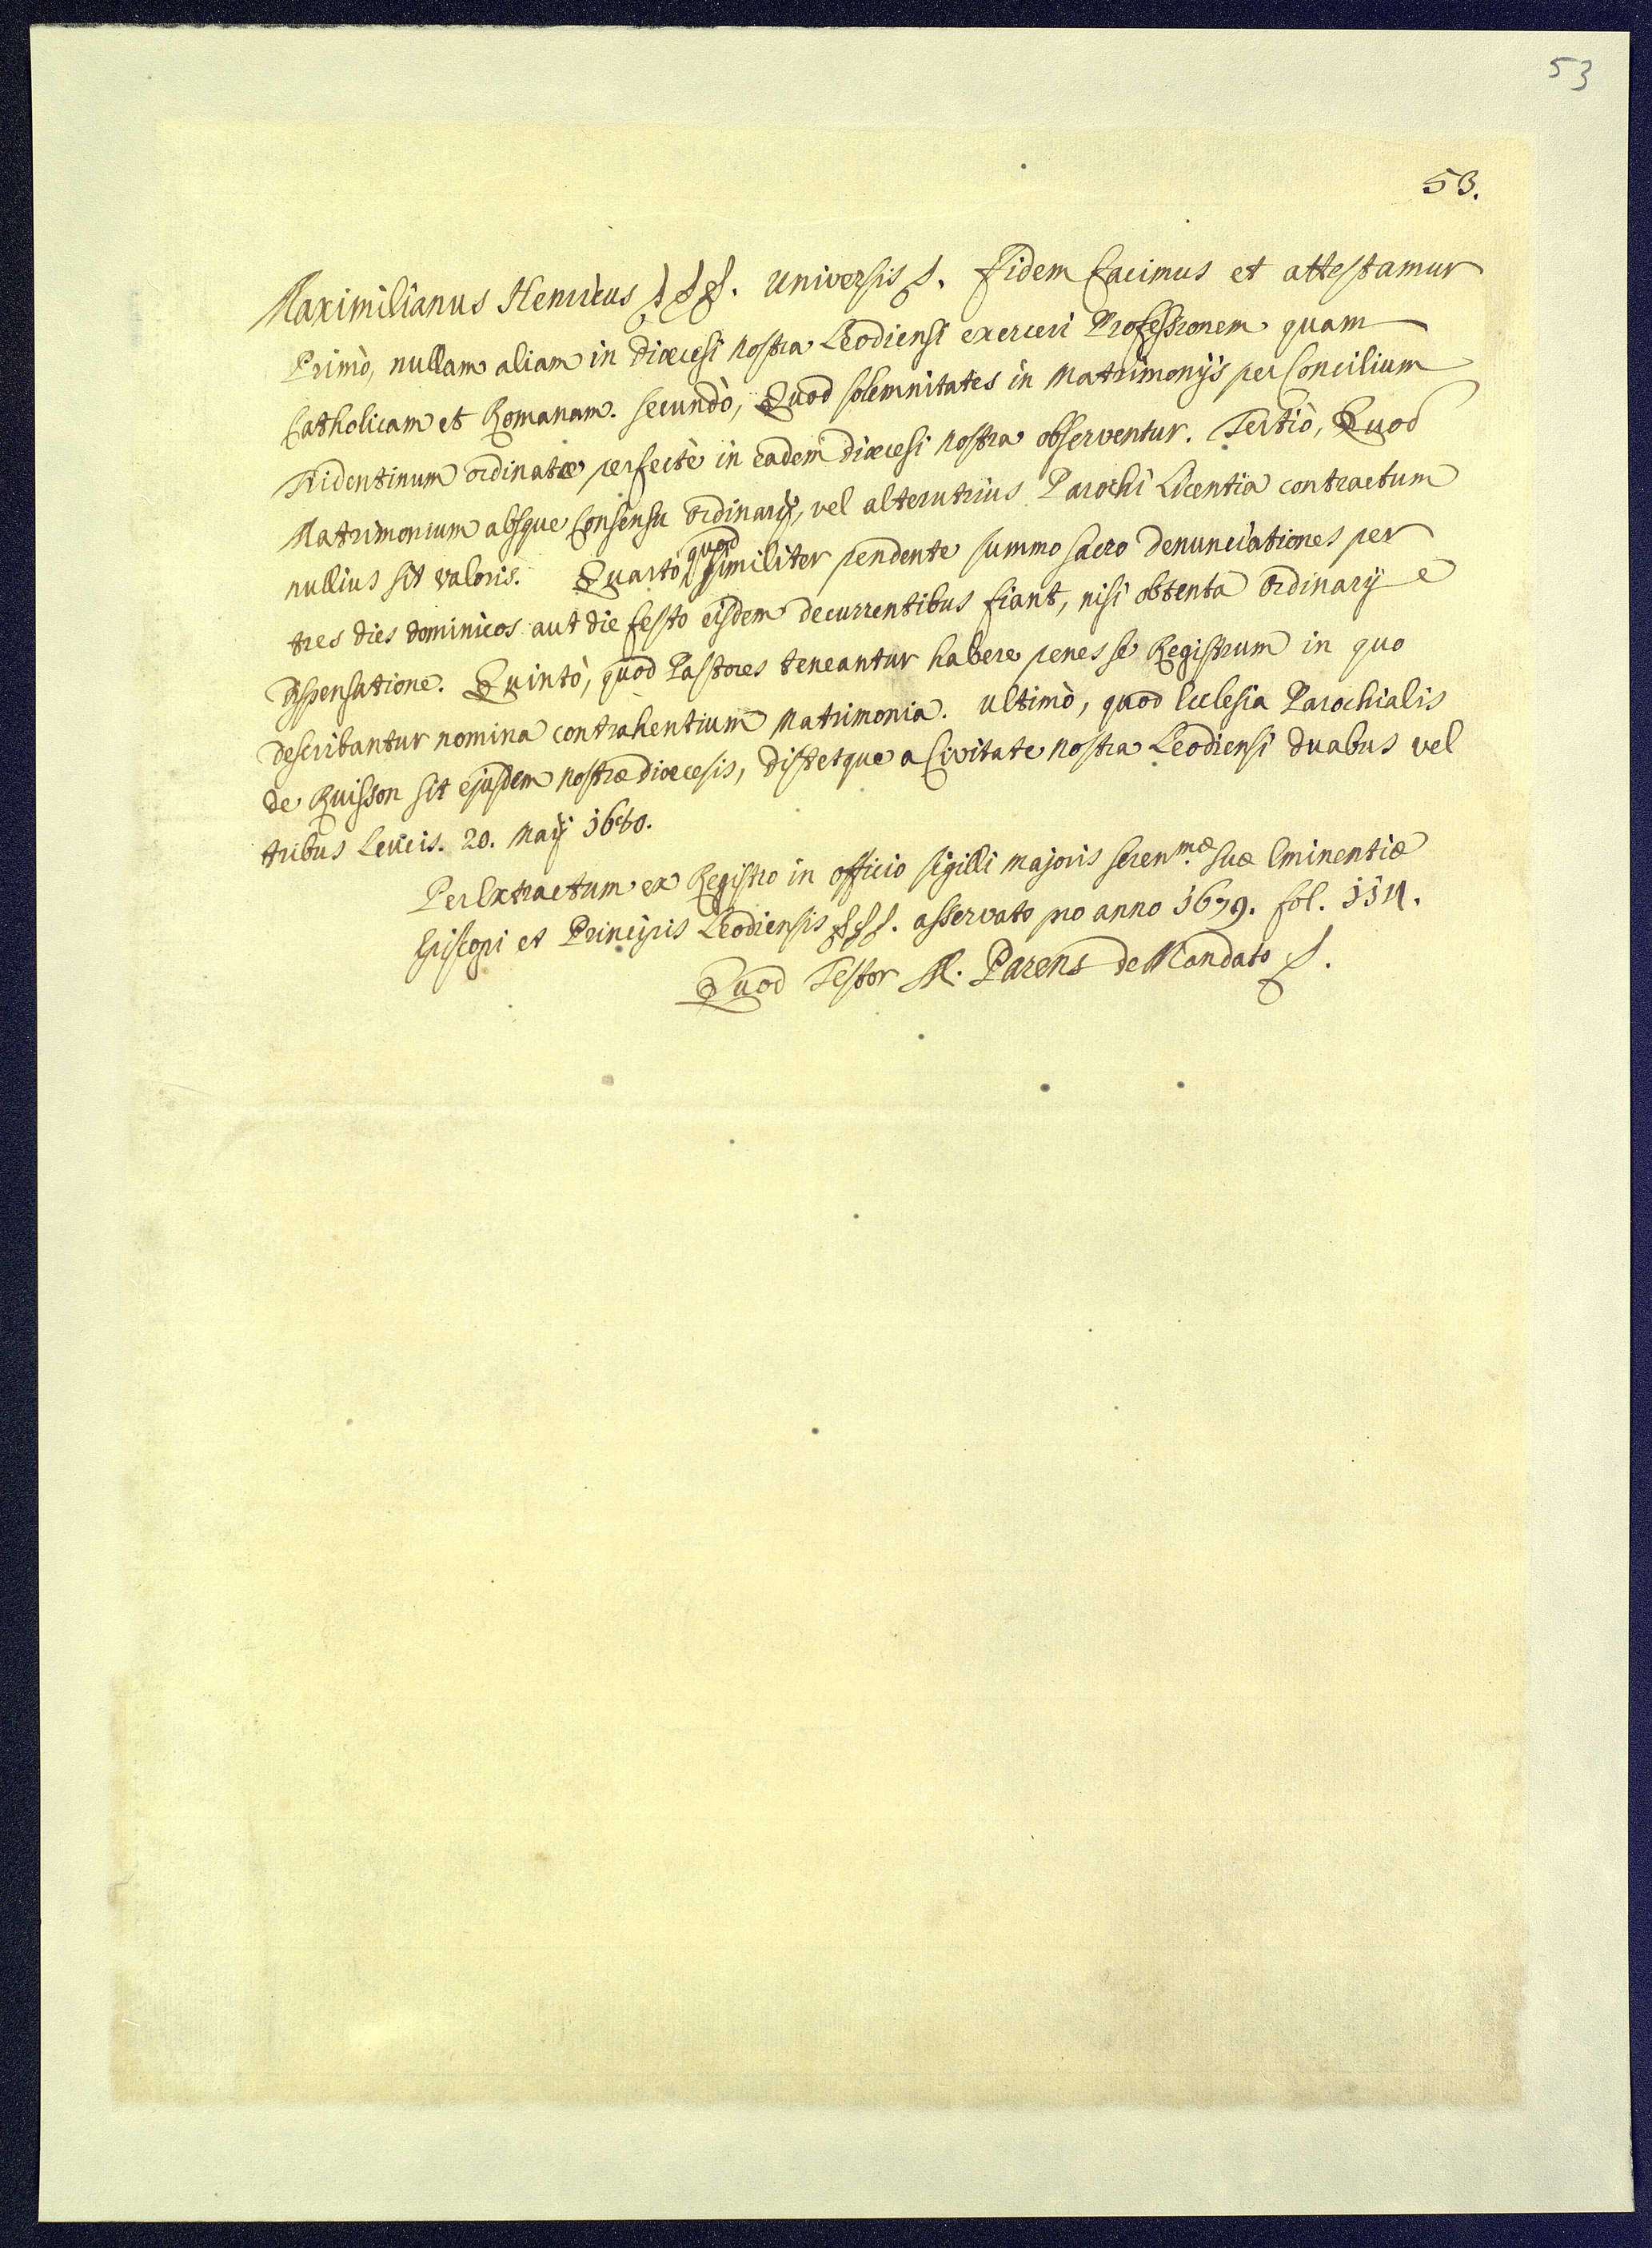 53
53.
Maximilianus Henricus &&&. Universis &. Fidem facimus et attestamur
Primò, nullam aliam in diœcesi nostra Leodiensi exerceri Professionem quam
Catholicam et Romanam. Secundò, Quod solemnitates in Matrimonijs per Concilium
Tridentinum ordinatæ perfectè in eadem diœcesi nostra observentur. Tertiò, Quod
Matrimonium absque Consensu Ordinarij, vel alterutrius Parochi Licentia contractum
nullius sit valoris. Quartò quod similiter pendente summo sacro denunciationes per
tres dies dominicos aut die festo eisdem decurrentibus fiant, nisi obtenta Ordinarij
dispensatione. Quintò, quod Pastores teneantur habere penes se Registrum in quo
describantur nomina contrahentium Matrimonia. Ultimò, quod Ecclesia Parochialis
de Ruisson sit ejusdem nostræ diœcesis, distetque a Civitate nostra Leodiensi duabus vel
tribus Leucis. 20. Maij
Per Extractum ex Registro in officio sigilli majoris seren.mæ suæ Eminentiæ
Episcopi et Principis Leodiensis &&&. asservato pro anno 1679. fol. 114.
Quod Testor M. Parens de Mandato &.